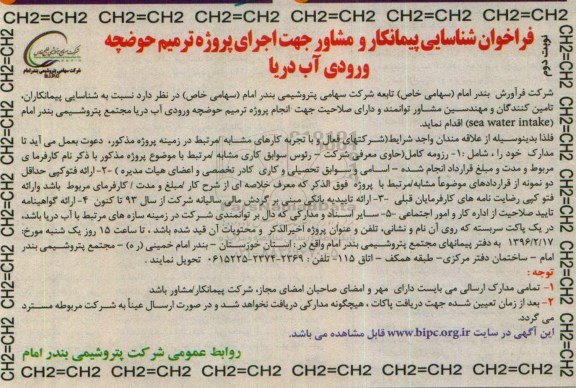 CH2=CH2 CH2=CH2 CH2=CH2 CH2=CH2 CH2=CH2 CH2=CH2 CH2=CH2
نوبت دوم
فراخوان شناسایی پیمانکار و مشاور جهت اجرای پروژه ترمیم حوضچه
ورودی آب دریا
شرکت سهامی پتروشیمی بندر امام
B.I.P.C
شرکت فرآورش بندر امام (سهامی خاص) تابعه شرکت سهامی پتروشیمی بندر امام (سهامی خاص) در نظر دارد نسبت به شناسایی پیمانکاران،
تامین کنندگان و مهندسین مشاور توانمند و دارای صلاحیت جهت انجام پروژه ترمیم حوضچه ورودی آب دریا مجتمع پتروشیمی بندر امام
(sea water intake) اقدام نماید.
فلذا بدینوسیله از علاقه مندان واجد شرایط(شرکتهای اول و با تجربه کارهای مشابه /مرتبط در زمینه پروژه مذکور، دعوت بعمل می آید تا
مدارک خود را ، شامل :۱- رزومه کامل(حاوی معرفی شرکت – رئوس سوابق کاری مشابه /مرتبط با موضوع پروژه مذکور با ذکر نام کارفرما ی
مربوط و مدت و مبلغ قرارداد انجام شده – اسامی و سوابق تحصیلی و کاری کادر تخصصی و اعضای هیات مدیره ) -۲- ارائه فتوکپی حداقل
دو نمونه از قراردادهای موضوعاً مشابه/مرتبط با پروژه فوق الذکر که معرف خلاصه ای از شرح کار /مبلغ و مدت / کارفرمای مربوط باشد وارائه
فتو کپی رضایت نامه های کارفرمایان قبلی -۳- ارائه تاییدیه بانکی مبنی بر گردش مالی سالیانه شرکت از سال ۹۳ تا کنون -۴- ارائه گواهینامه
تایید صلاحیت از اداره کار و امور اجتماعی -۵- سایر اسناد و مدارکی که دال بر توانمندی شرکت در زمینه سازه های مرتبط با آب دریا باشد،
در یک پاکت سربسته که روی آن نام و نشانی، تلفن و عنوان پروژه اخیرالذکر و محتویات آن قید شده باشد ، تا ساعت ۱۵ روز یک شنبه مورخ:
۱۳۹۶/۲/۱۷ به دفتر پیمانهای مجتمع پتروشیمی بندر امام واقع در: استان خوزستان – بندر امام خمینی (ره ) – مجتمع پتروشیمی بندر
امام – ساختمان دفتر مرکزی– طبقه همکف – اتاق ۱۱۵- تلفن : ۲۳۶۹-۲۳۷۴-۰۶۱۵۲۲۵ تحویل نمایند .
توجه :
۱- تمامی مدارک ارسالی می بایست دارای مهر و امضای صاحبان امضای مجاز، شرکت پیمانکار/مشاور باشد
۲- بعد از زمان تعیین شده جهت دریافت پاکات ، هیچگونه مدارکی دریافت نخواهد شد و در صورت ارسال عیناً به شرکت مربوطه مسترد
می گردد.
این آگهی در سایت www.bipc.org.ir قابل مشاهده می باشد.
روابط عمومی شرکت پتروشیمی بندر امام
CH2=CH2 CH2=CH2 CH2=CH2 CH2=CH2 CH2=CH2 CH2=CH2 CH2=CH2